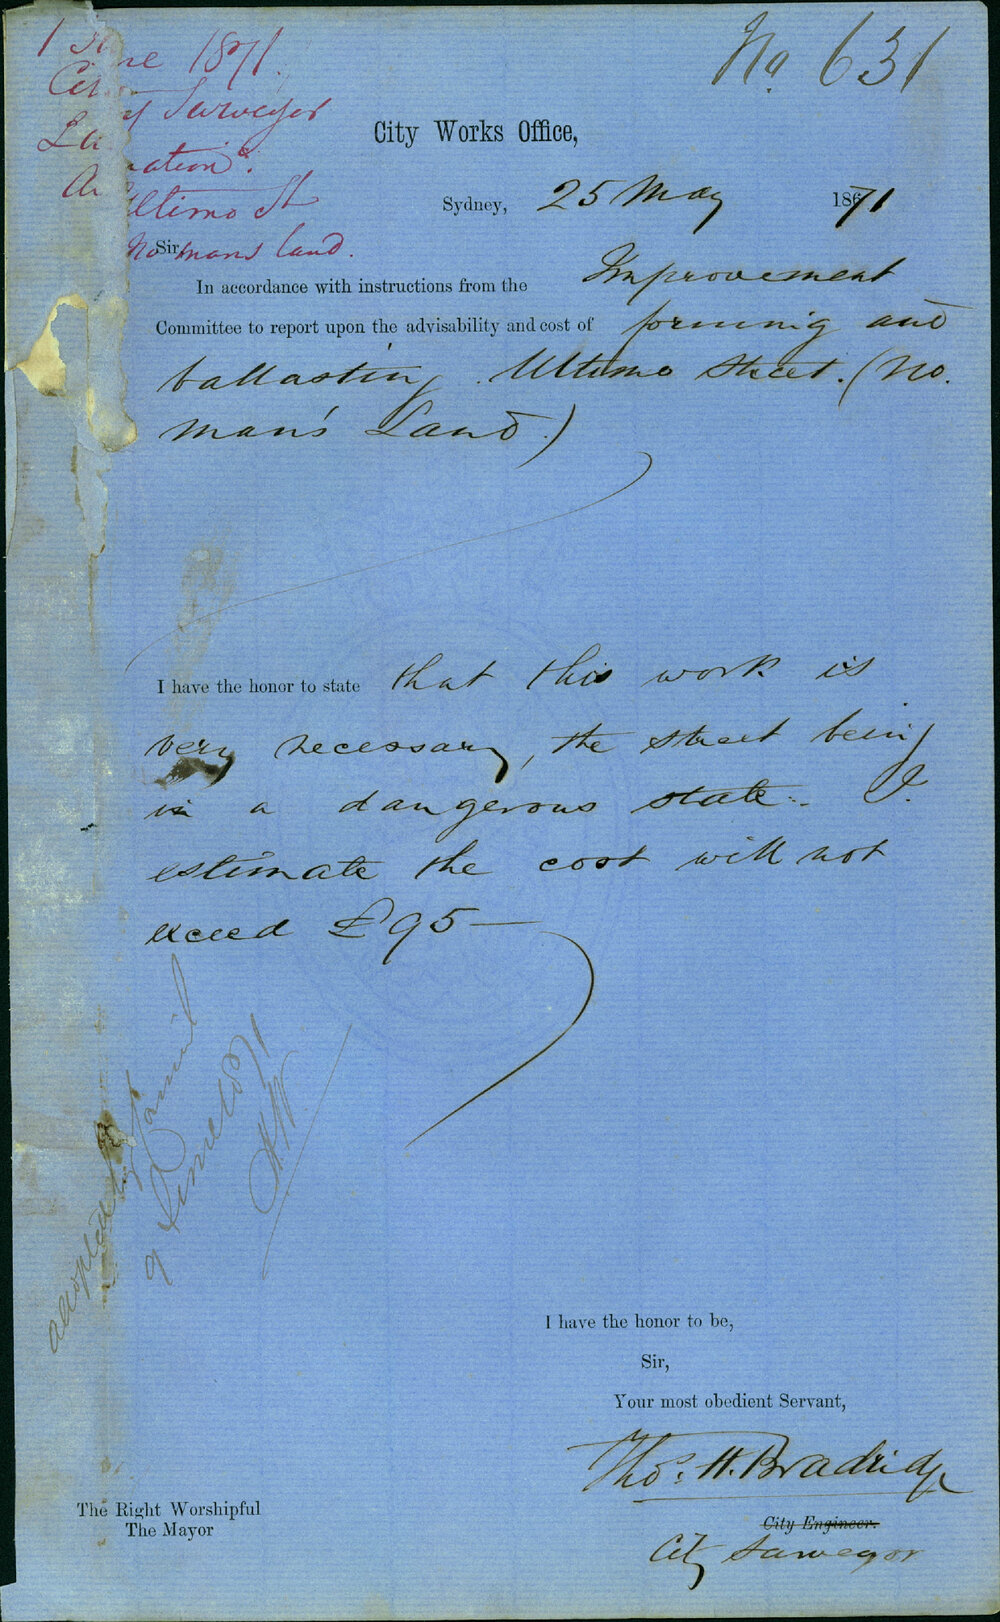 No. 631
1 June 1871.
City Surveyor
Ultimo St
No mans land.
City Works Office,
Sydney, 25 May 1871
Sir,
In accordance with instructions from the Improvement
Committee to report upon the advisability and cost of forming and
ballasting Ultimo Street. (No.
man's Land.)
I have the honor to state that this work is
very necessary, the street being
in a dangerous state. I
estimate the cost will not
exceed £95—
adopted by Council
9 June 1871
I have the honor to be,
Sir,
Your most obedient Servant,
Thos. H. Bradridge
City Engineer.
City Surveyor
The Right Worshipful
The Mayor